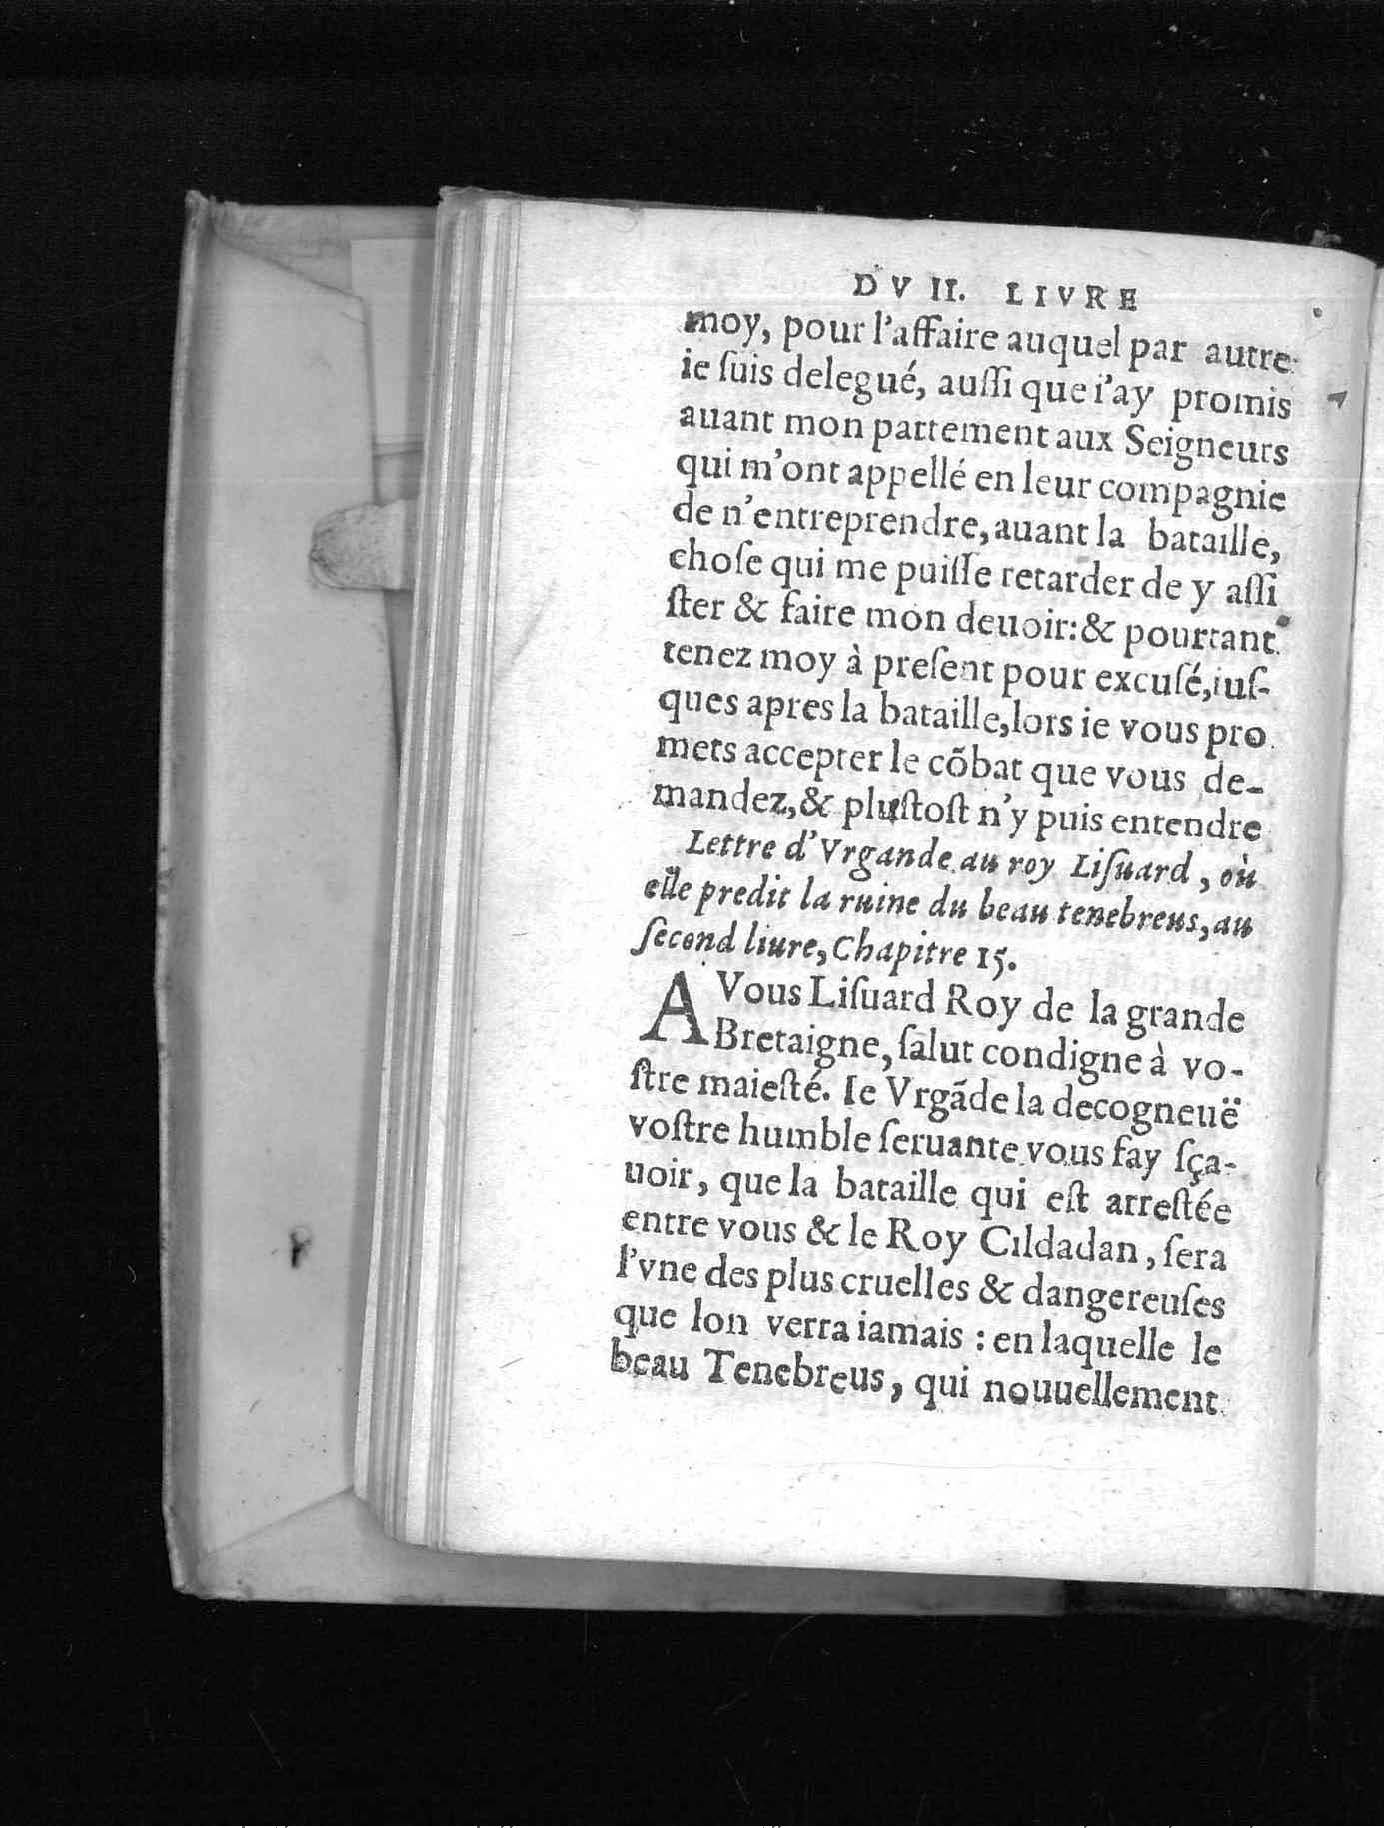 DV II. LIVRE
moy, pour l'affaire auquel par autre
ie ſuis delegué, auſſi que i'ay promis
auant mon partement aux Seigneurs
qui m'ont appellé en leur compagnie
de n'entreprendre, auant la bataille,
choſe qui me puiſſe retarder de y aſſi
ſter & faire mon deuoir: & pourtant
tenez moy à preſent pour excuſé, iuſ-
ques apres la bataille, lors ie vous pro
mets accepter le cõbat que vous de-
mandez, & pluſtoſt n'y puis entendre
Lettre d'Vrgande au roy Liſuard, où
elle predit la ruine du beau tenebreus, au
ſecond liure, Chapitre 15.
A Vous Liſuard Roy de la grande
Bretaigne, ſalut condigne à vo-
ſtre maieſté. Ie Vrgãde la decogneuë
voſtre humble ſeruante vous fay ſça-
uoir, que la bataille qui eſt arreſtée
entre vous & le Roy Cildadan, ſera
l'vne des plus cruelles & dangereuſes
que lon verra iamais : en laquelle le
beau Tenebreus, qui nouuellement